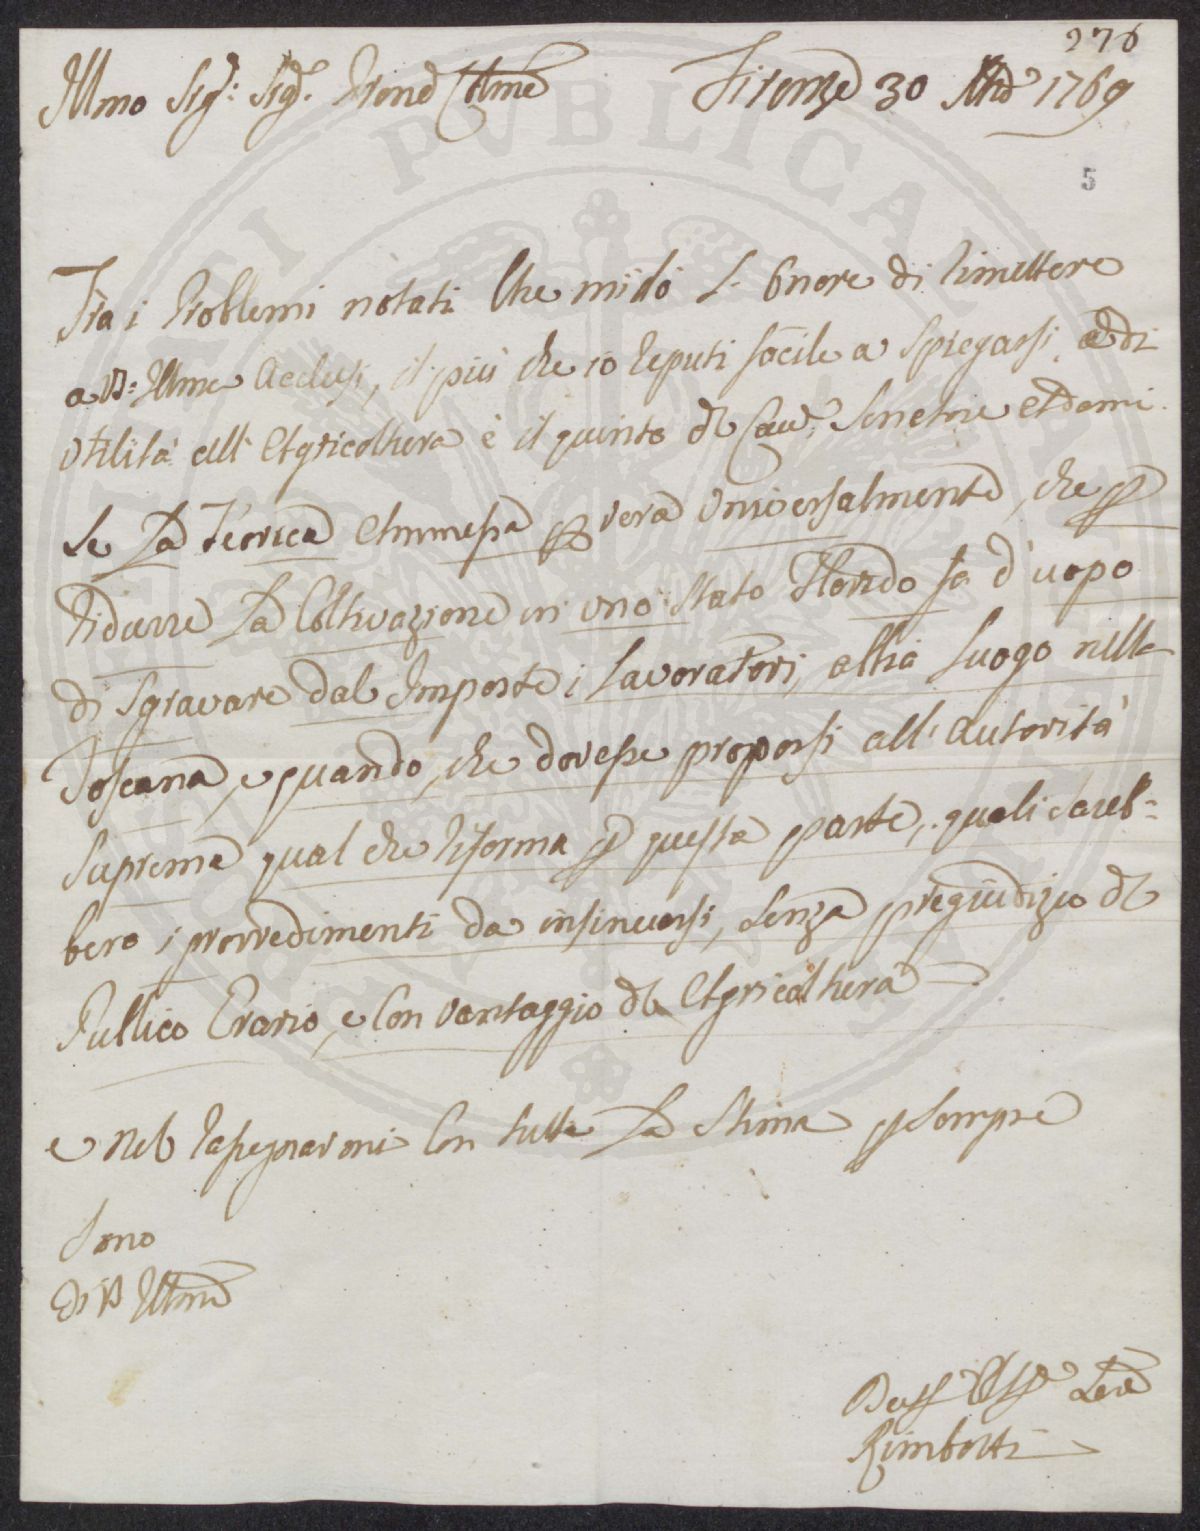 276
Illmo Sig:r Sig:r Prone Colmo Firenze 30 1769
5
Fra i Problemi notati che mi do L'Onore di rimettere
a VS: Illma Acclusi, il più che io reputi facile a Spiegarsi, e di
Utilità all' Agricoltura è il quinto del Cav:
Se La Teorica Ammessa p vera Universalmente, che p
ridurre La Coltivazione in uno Stato Florido fa d'uopo
di Sgravare dal Imposte i Lavoratori, abbia Luogo nella
Toscana, e quando, che dovesse proporsi all'Autorità
Suprema qual che riforma p questa parte, quali sareb-
bero i provvedimenti da insinuarsi, Senza pregiudizio del
Pubblico Erario, e Con vantaggio del Agricoltura
e nel rassegnarmi Con tutta La Stima p sempre
Sono
Di VS Illma
Rimbotti
PVBLICAE